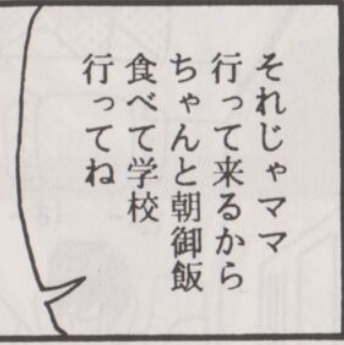 それじゃママ
行って来るから
ちゃんと朝御飯
食べて学校
行ってね